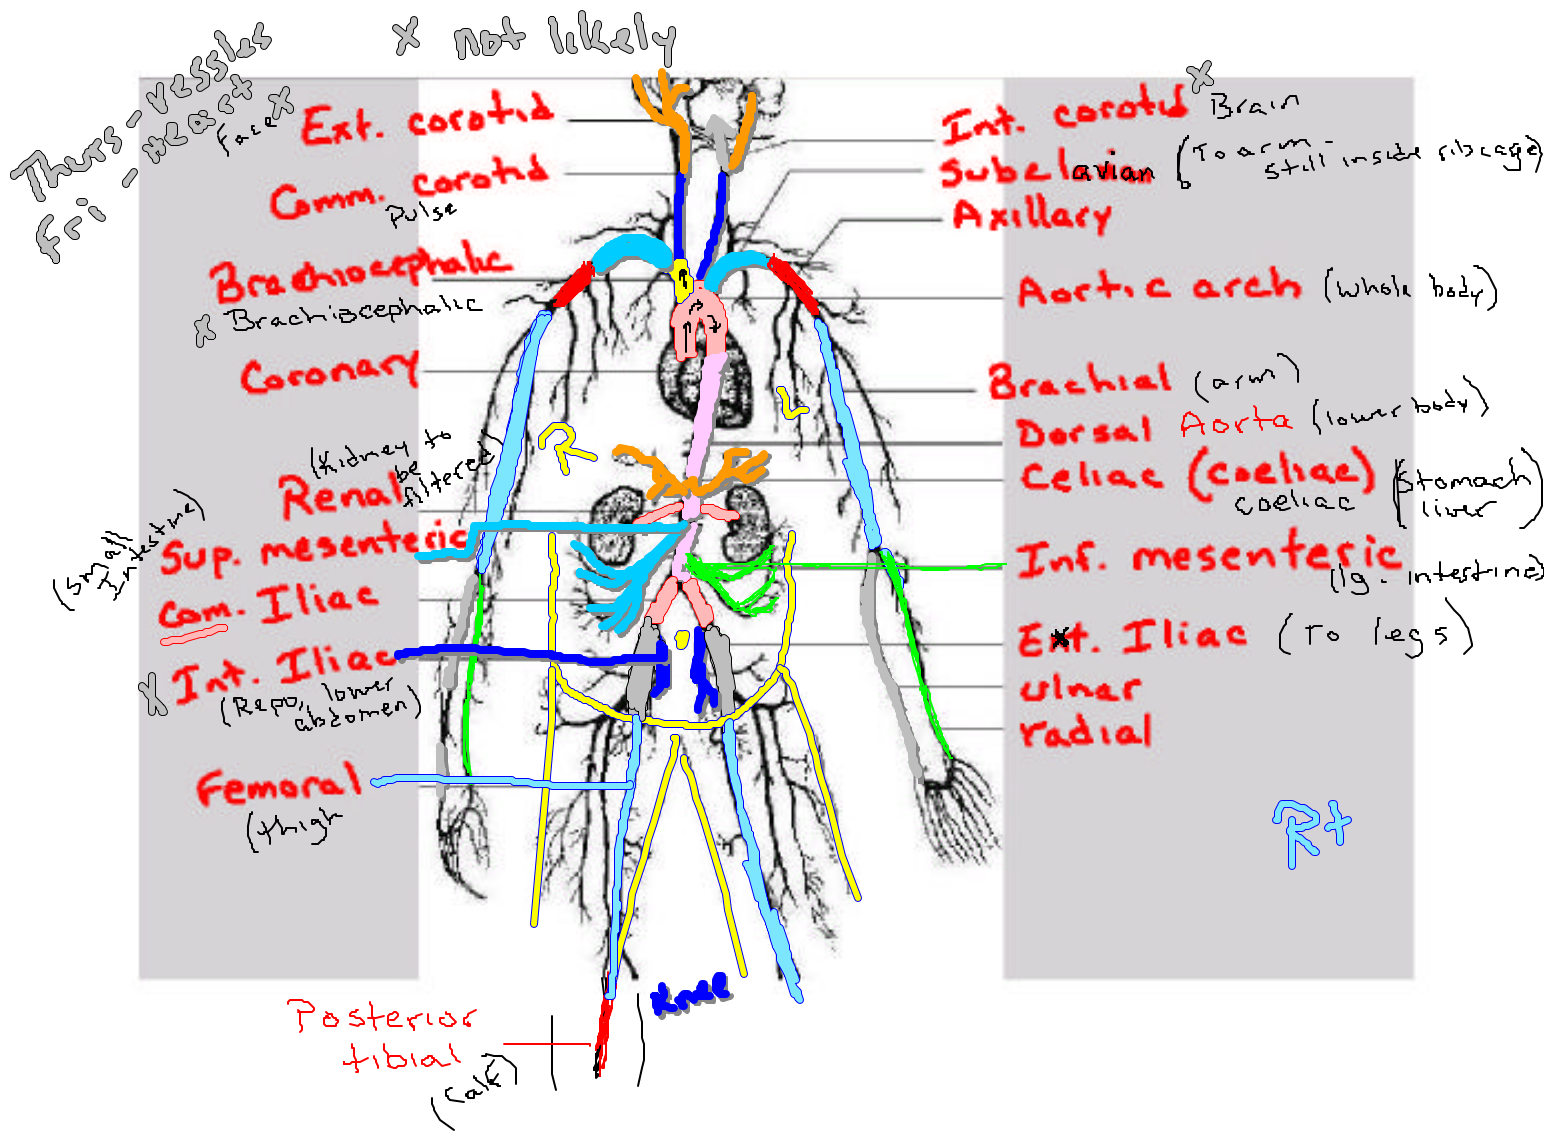 x not likely
Thurs - vessles
Fri - Heart
Face x
Ext. corotid
Comm. corotid
Pulse
Brachiocephalic
x Brachiocephalic
Coronary
(Kidney to
be
filtered)
Renal
Sup. mesenteric
(small
Intestine)
Com. Iliac
x Int. Iliac
(Repo, lower
abdomen)
Femoral
(thigh
Posterior
tibial
(calf)
Knee
R
L
x
Int. corotid Brain
Subclavian (To arm -
still inside ribcage)
Axillary
Aortic arch (whole body)
Brachial (arm)
Dorsal Aorta (lower body)
Celiac (coeliac) (stomach
coeliac liver)
Inf. mesenteric
(lg. intestine)
Ext. Iliac (To legs)
ulnar
radial
Rt